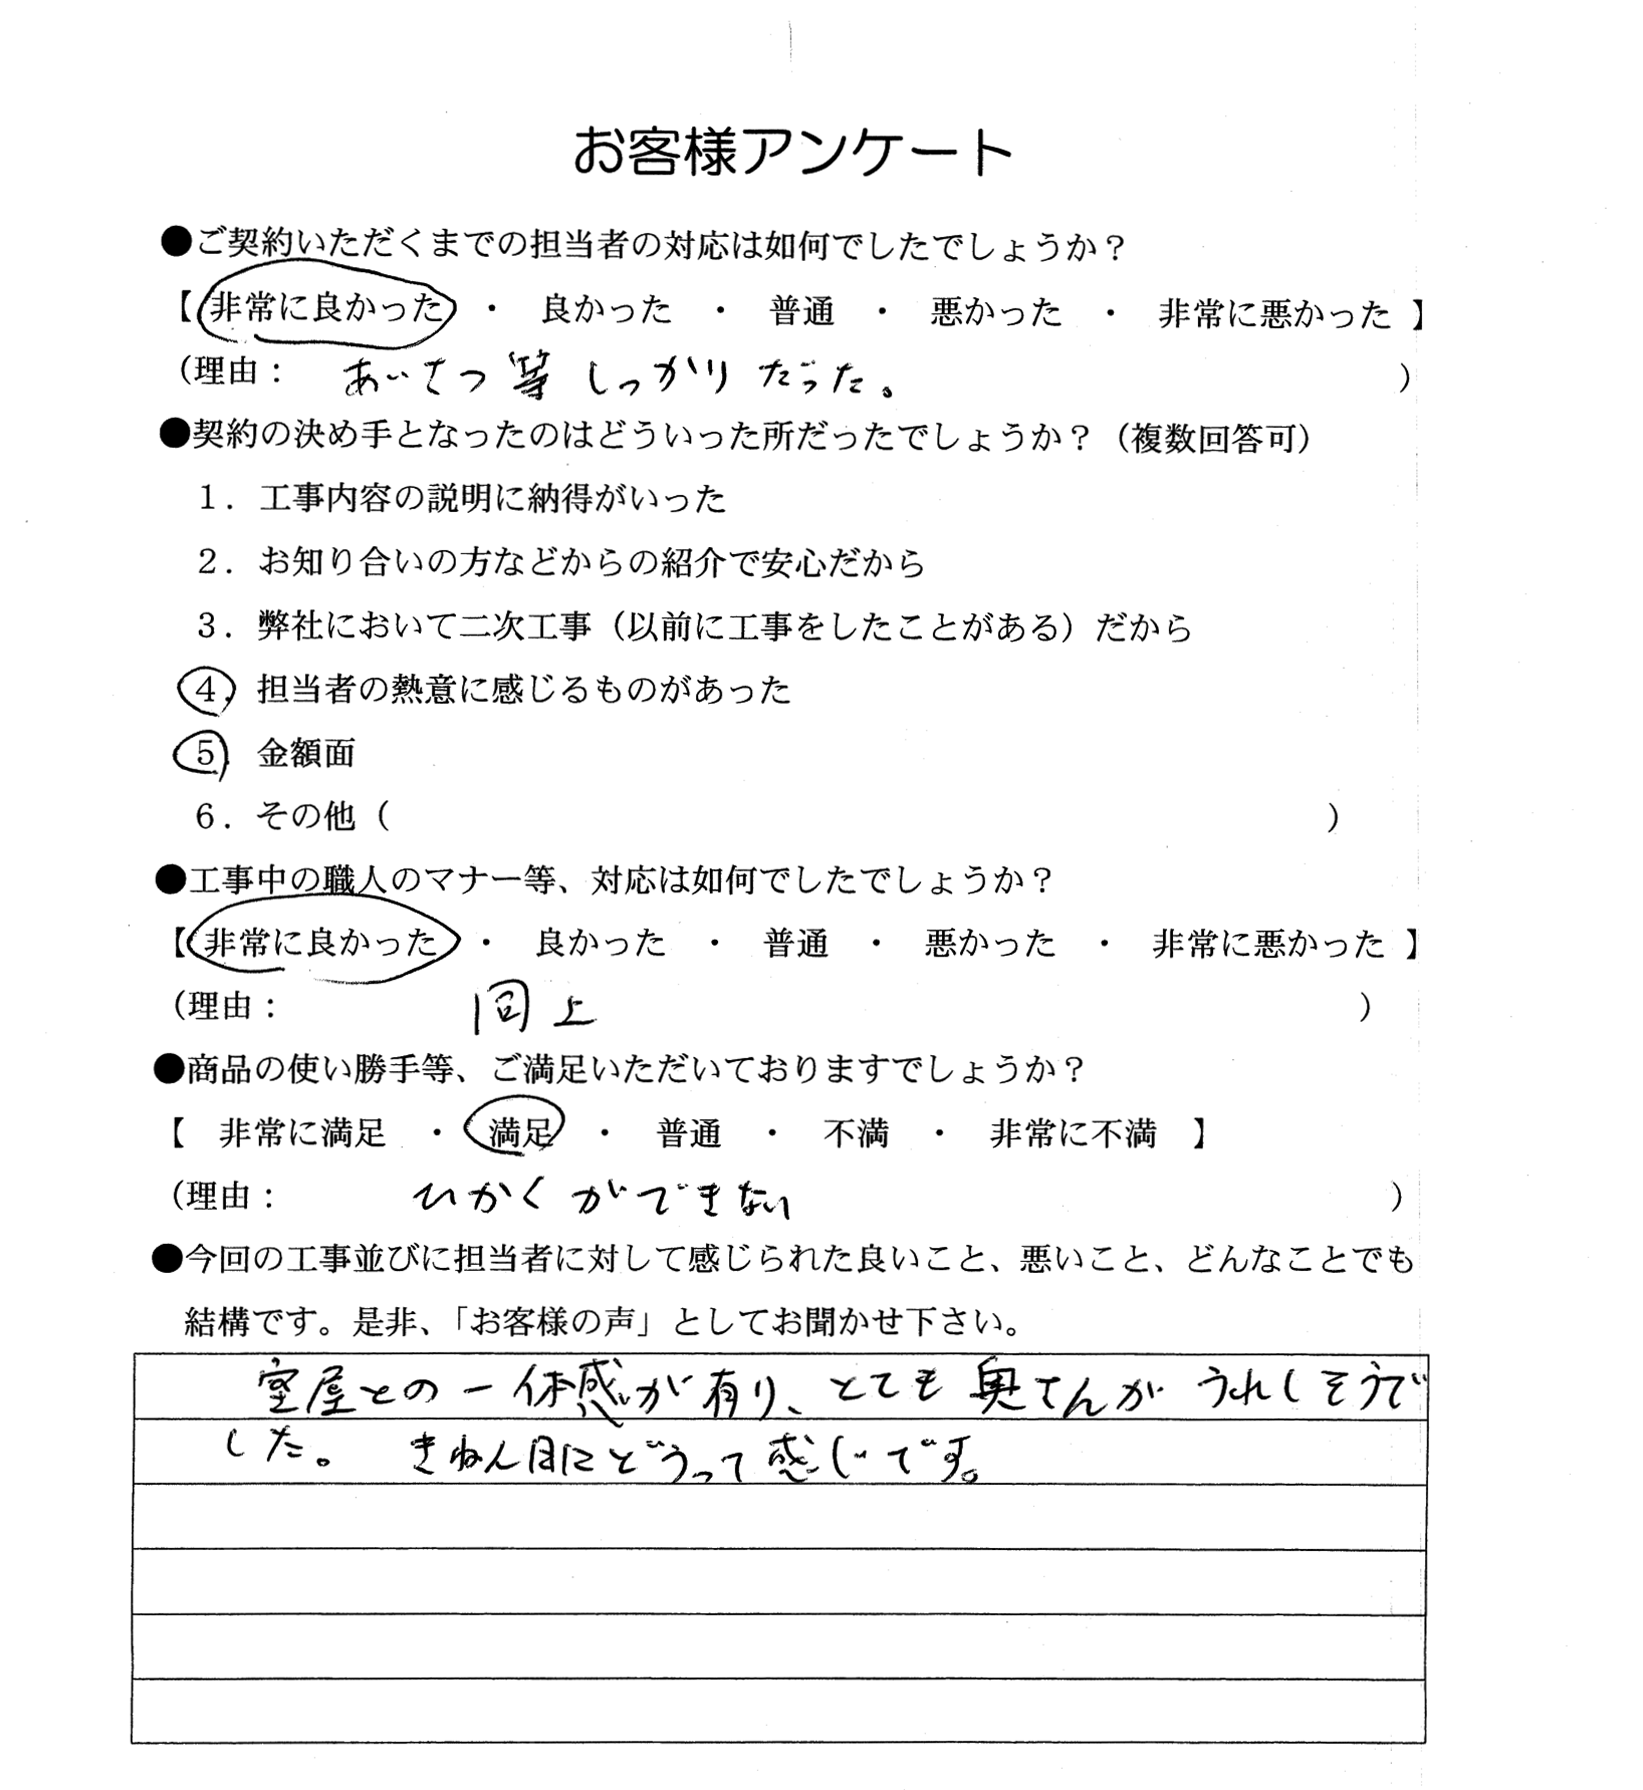 お客様アンケート
●ご契約いただくまでの担当者の対応は如何でしたでしょうか？
【 非常に良かった ・ 良かった ・ 普通 ・ 悪かった ・ 非常に悪かった 】
（理由： あいさつ等しっかりだった。 ）
●契約の決め手となったのはどういった所だったでしょうか？（複数回答可）
１．工事内容の説明に納得がいった
２．お知り合いの方などからの紹介で安心だから
３．弊社において二次工事（以前に工事をしたことがある）だから
４．担当者の熱意に感じるものがあった
５．金額面
６．その他（ ）
●工事中の職人のマナー等、対応は如何でしたでしょうか？
【 非常に良かった ・ 良かった ・ 普通 ・ 悪かった ・ 非常に悪かった 】
（理由： 同上 ）
●商品の使い勝手等、ご満足いただいておりますでしょうか？
【 非常に満足 ・ 満足 ・ 普通 ・ 不満 ・ 非常に不満 】
（理由： ひかくができない ）
●今回の工事並びに担当者に対して感じられた良いこと、悪いこと、どんなことでも
結構です。是非、「お客様の声」としてお聞かせ下さい。
室屋との一体感が有り、とても奥さんがうれしそうで
した。 きねん日にどうって感じです。